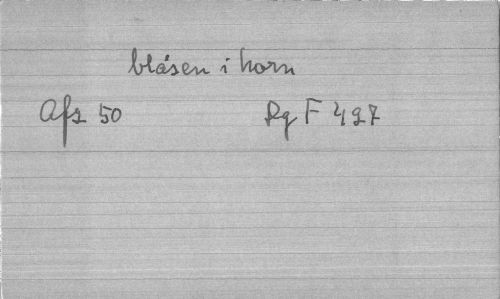 blásen i horn
Afz 50 Rg F 497